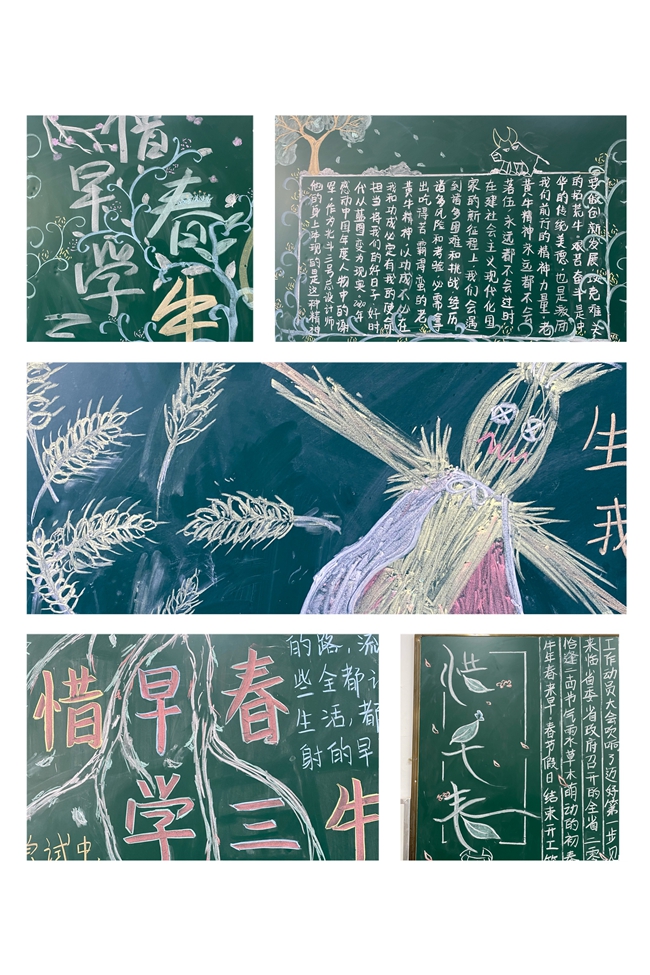 惜
早春
学
三牛
要做创新发展、攻克难关
的拓荒牛。艰苦奋斗是中
华的传统美德，也是激励
我们前行的精神力量，老
黄牛精神永远都不会
若伍，永远都不会过时
在建社会主义现代化国
家的新征程上，我们会遇
到诸多困难和挑战，经历
诸多风险和考验，必需拿
出吃得苦、霸得蛮的老
黄牛精神，以功成不必在
我和功成必定有我的使命
担当，将我们的好日子、好时
代从蓝图变为现实。2020年
感动中国年度人物中的谢
军，作为北斗三号总设计师
他的身上体现的是这种精神
生
我
惜早春
学三牛
的路，流
些全都让
生活，都
射的早
试中
惜
早
春
工作动员大会吹响了迈好第一步、见
来临省委省政府召开的全省二零
恰逢二雨节气雨水草木萌动的初春
牛年春来早。春节假日结束开工